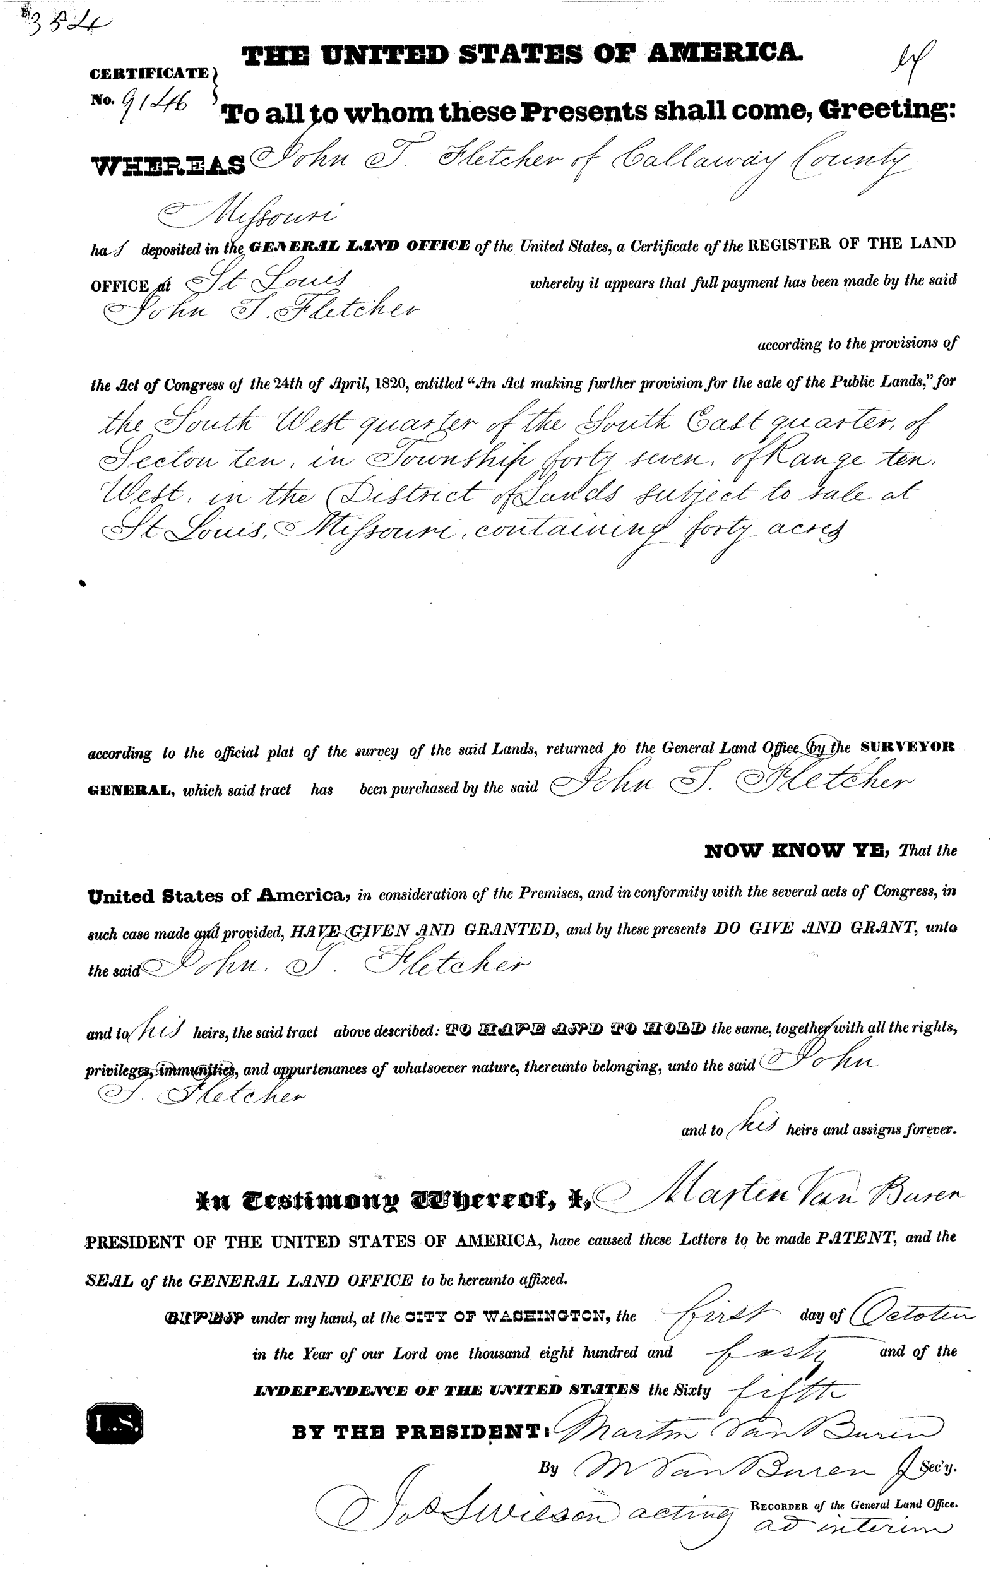 354
THE UNITED STATES OF AMERICA.
CERTIFICATE
No. 9146
To all to whom these Presents shall come, Greeting:
WHEREAS John T. Fletcher of Callaway County
Missouri
has deposited in the GENERAL LAND OFFICE of the United States, a Certificate of the REGISTER OF THE LAND
OFFICE at St Louis whereby it appears that full payment has been made by the said
John T. Fletcher
according to the provisions of
the Act of Congress of the 24th of April, 1820, entitled "An Act making further provision for the sale of the Public Lands," for
the South West quarter of the South East quarter, of
Secton ten, in Township forty seven, of Range ten,
West, in the District of Lands subject to sale at
St Louis, Missouri, containing forty acres
according to the official plat of the survey of the said Lands, returned to the General Land Office by the SURVEYOR
GENERAL, which said tract has been purchased by the said John T. Fletcher
NOW KNOW YE, That the
United States of America, in consideration of the Premises, and in conformity with the several acts of Congress, in
such case made and provided, HAVE GIVEN AND GRANTED, and by these presents DO GIVE AND GRANT, unto
the said John. T. Fletcher
and to his heirs, the said tract above described: TO HAVE AND TO HOLD the same, together with all the rights,
privileges, immunities, and appurtenances of whatsoever nature, thereunto belonging, unto the said John
T. Fletcher
and to his heirs and assigns forever.
In Testimony Whereof, I, Martin Van Buren
PRESIDENT OF THE UNITED STATES OF AMERICA, have caused these Letters to be made PATENT, and the
SEAL of the GENERAL LAND OFFICE to be hereunto affixed.
GIVEN under my hand, at the CITY OF WASHINGTON, the first day of October
in the Year of our Lord one thousand eight hundred and forty and of the
INDEPENDENCE OF THE UNITED STATES the Sixty fifth
L.S.
BY THE PRESIDENT: Martin Van Buren
By M Van Buren Jr Sec'y.
Jos S Wilson acting RECORDER of the General Land Office.
ad interim